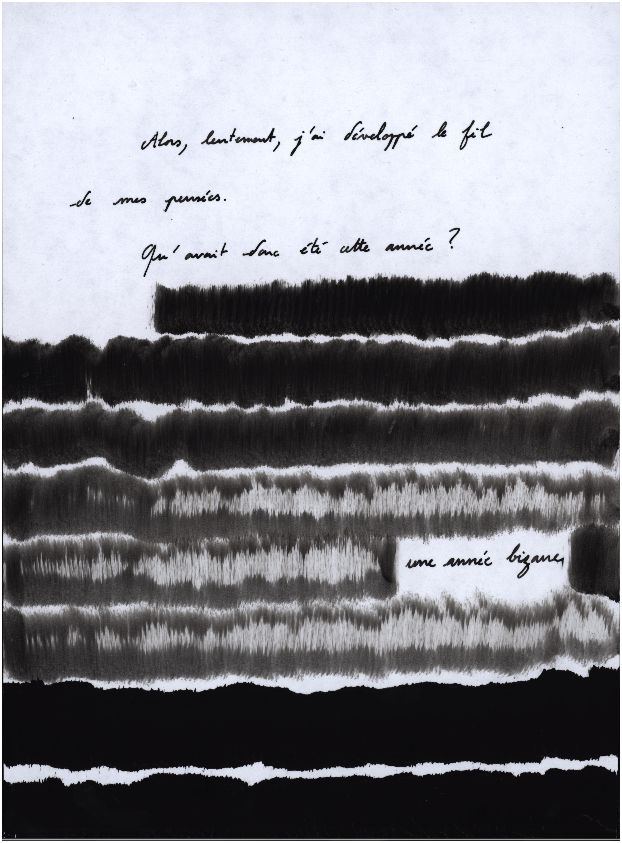 Alors, lentement, j'ai développé le fil
de mes pensées.
Qu'avait donc été cette année ?
une année bizarre,